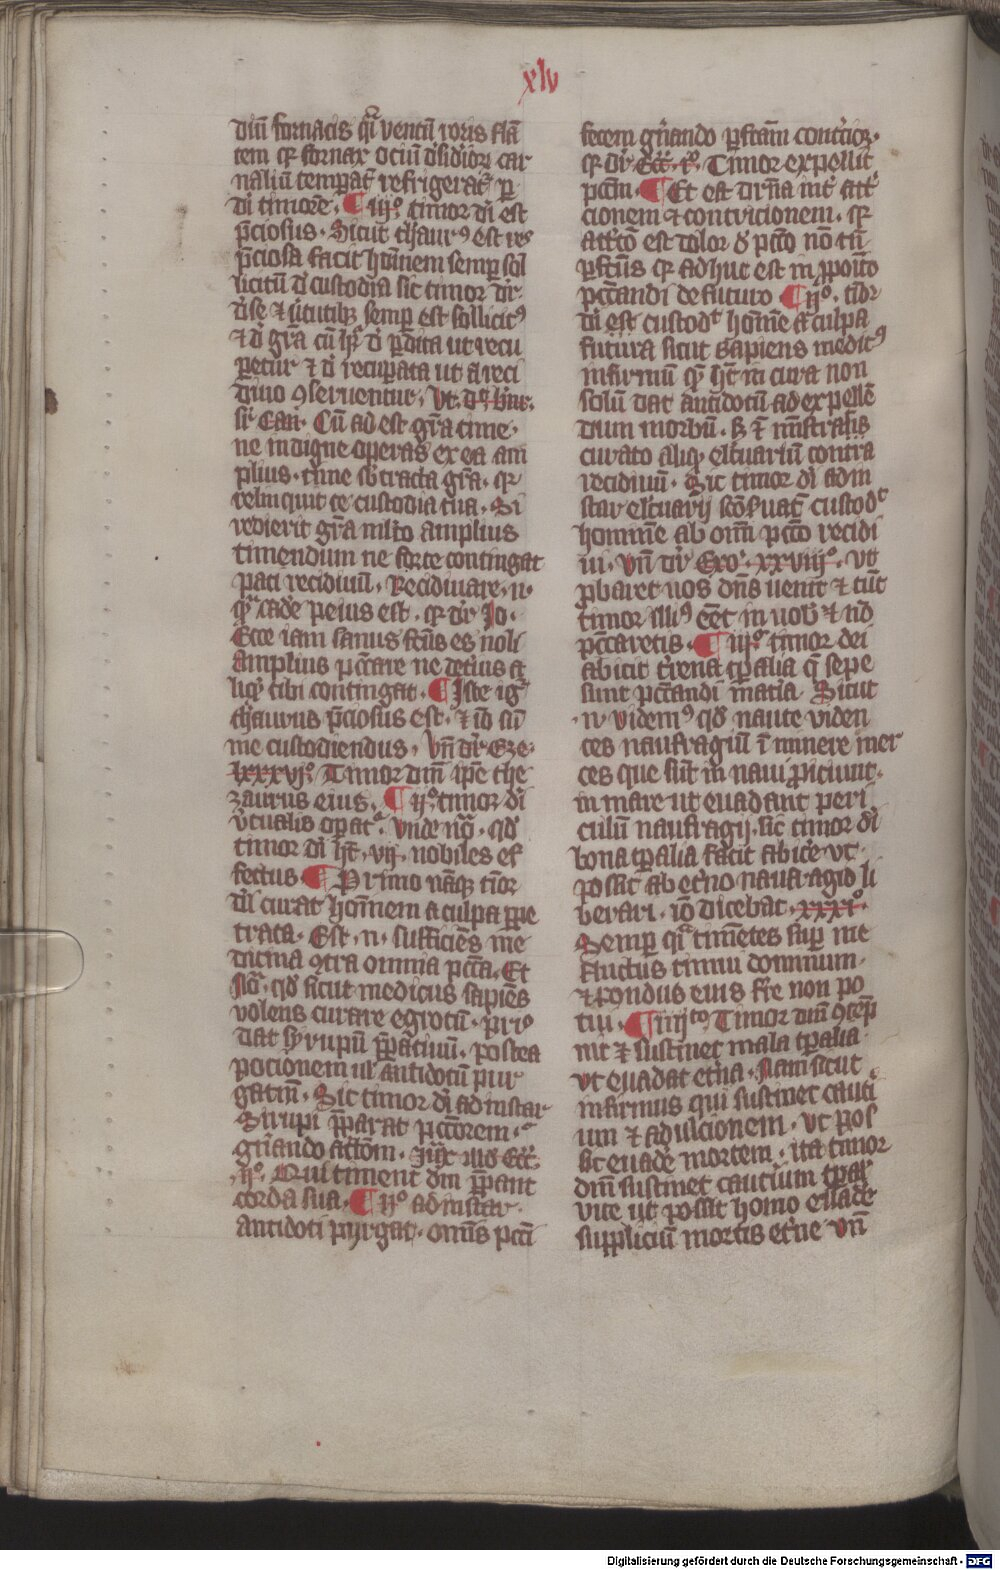 xlv
diu fornacis q̄i ventū roris flā
tem qr fornax ociū dsidiorū car
naliū temperat refrigerat᷑ p
di timorē. ¶ iijº timor di est
p̄ciosus. Sicut thaurꝰ est res
p̄ciosa facit hōinem semp sol
licitū d custodia sic timor di
semp est sollicitꝰ
⁊ d gr̄a cū hr̄ d p̄dita ut recu
petur ⁊ d recuperata ut a reci
diuo ꝯseruentur. Vt
Cū adest gr̄a time.
ne indigne operas ex ea am
plius. time sbtracta gr̄a. qr
relinquit te custodia tua. Si
redierit gr̄a mlto amplius
timendum ne forte contingat
pati recidiuū. Recidiuare. n.
q̄ cade peius est. qr dr Jo.
Ecce iam sanus fctus es noli
amplius pcc̄are ne deterius a
liqd tibi contingat. ¶ Iste ig᷑
thaurus p̄ciosus est. ⁊ iō sū
me custodiendus. Vn̄ dr Eze.
lxxxvjº. Timor dm̄ ipe the
zaurus eius. ¶ ijº timor di
v̄tualis operat᷑. Vnde nō. qd
timor di hꝫ. vij. nobiles ef
fectus. ¶ Primo nāqꝫ tior
di curat hoīnem a culpa ppe
trata. Est. n. sufficiēs me
dicina ꝯtra omnia pcc̄a. Et
Nō. qd sicut medicus sapiēs
volens curare egrotū. priº
dat syrupū p̄patiuū. postea
pocionem ul antidotū pur
gatiū. Sic timor di ad instar
Sirupi p̄parat pcc̄orem.
gn̄ando attōm. Iux illd Ecc̄.
ijº. Qui timent dm̄ p̄pant
corda sua. ¶ ijº ad instar.
antidoti purgat. omīs pcc̄i
fecem gn̄ando pfctam contc̄ioꝫ.
qr dr Ecc̄. jº. Timor expellit
pcc̄m. ¶ Et est drn̄a int att
cionem ⁊ contricionem. qr
att̄cō est dolor d pcc̄o nō tn̄
pfctūs qr adhuc est in ppoīto
pcc̄andi de futuro ¶ ijº. tior
di est custodit hoīnē a culpa
futura sicut sapiens medicꝰ
infirmū q̄ hꝫ in cura non
solū dat antidotū ad expellē
dum morbū. sꝫ ⁊ mīstralis
curato aliqd eltuariū contra
recidiuū. Sic timor di ad in
star eltuarij custodit
hominē ab omī pcc̄o recidi
ui. vn̄ dr Exoº. xxviijº. vt
pbaret uos dn̄s uenit ⁊ ut
timor illiꝰ eēt in uob ⁊ nō
pcc̄aretis. ¶ iijº timor dei
abicit trena tpalia q̄ sepe
sunt pcc̄andi matia. Sicut
. n videmꝰ qd naute viden
tes naufragiū ī minere mer
ces que sūt in naui piciunt.
in mare ut euadant peri
culū naufragij. sic timor di
bona tpalia facit abice vt
possit ab et̄no naufragio li
berari. iō dicebat. xxxiº.
Semp q̄i timētes sup me
fluctus timui dominum.
⁊ pondus eius fre non po
tui. ¶ iiijto. Timor dm̄ ꝯtep
nit ⁊ sustinet mala tpalia
vt euadat et̄na. Nam sicut
infirmus qui sustinet cauti
um ⁊ adustcionem. vt pos
sit euade mortem. ita timor
dm̄ sustinet cautium tpal
vite ut possit homo euade
suppliciū mortis et̄ne vn̄
Digitalisierung gefördert durch die Deutsche Forschungsgemeinschaft - DFG